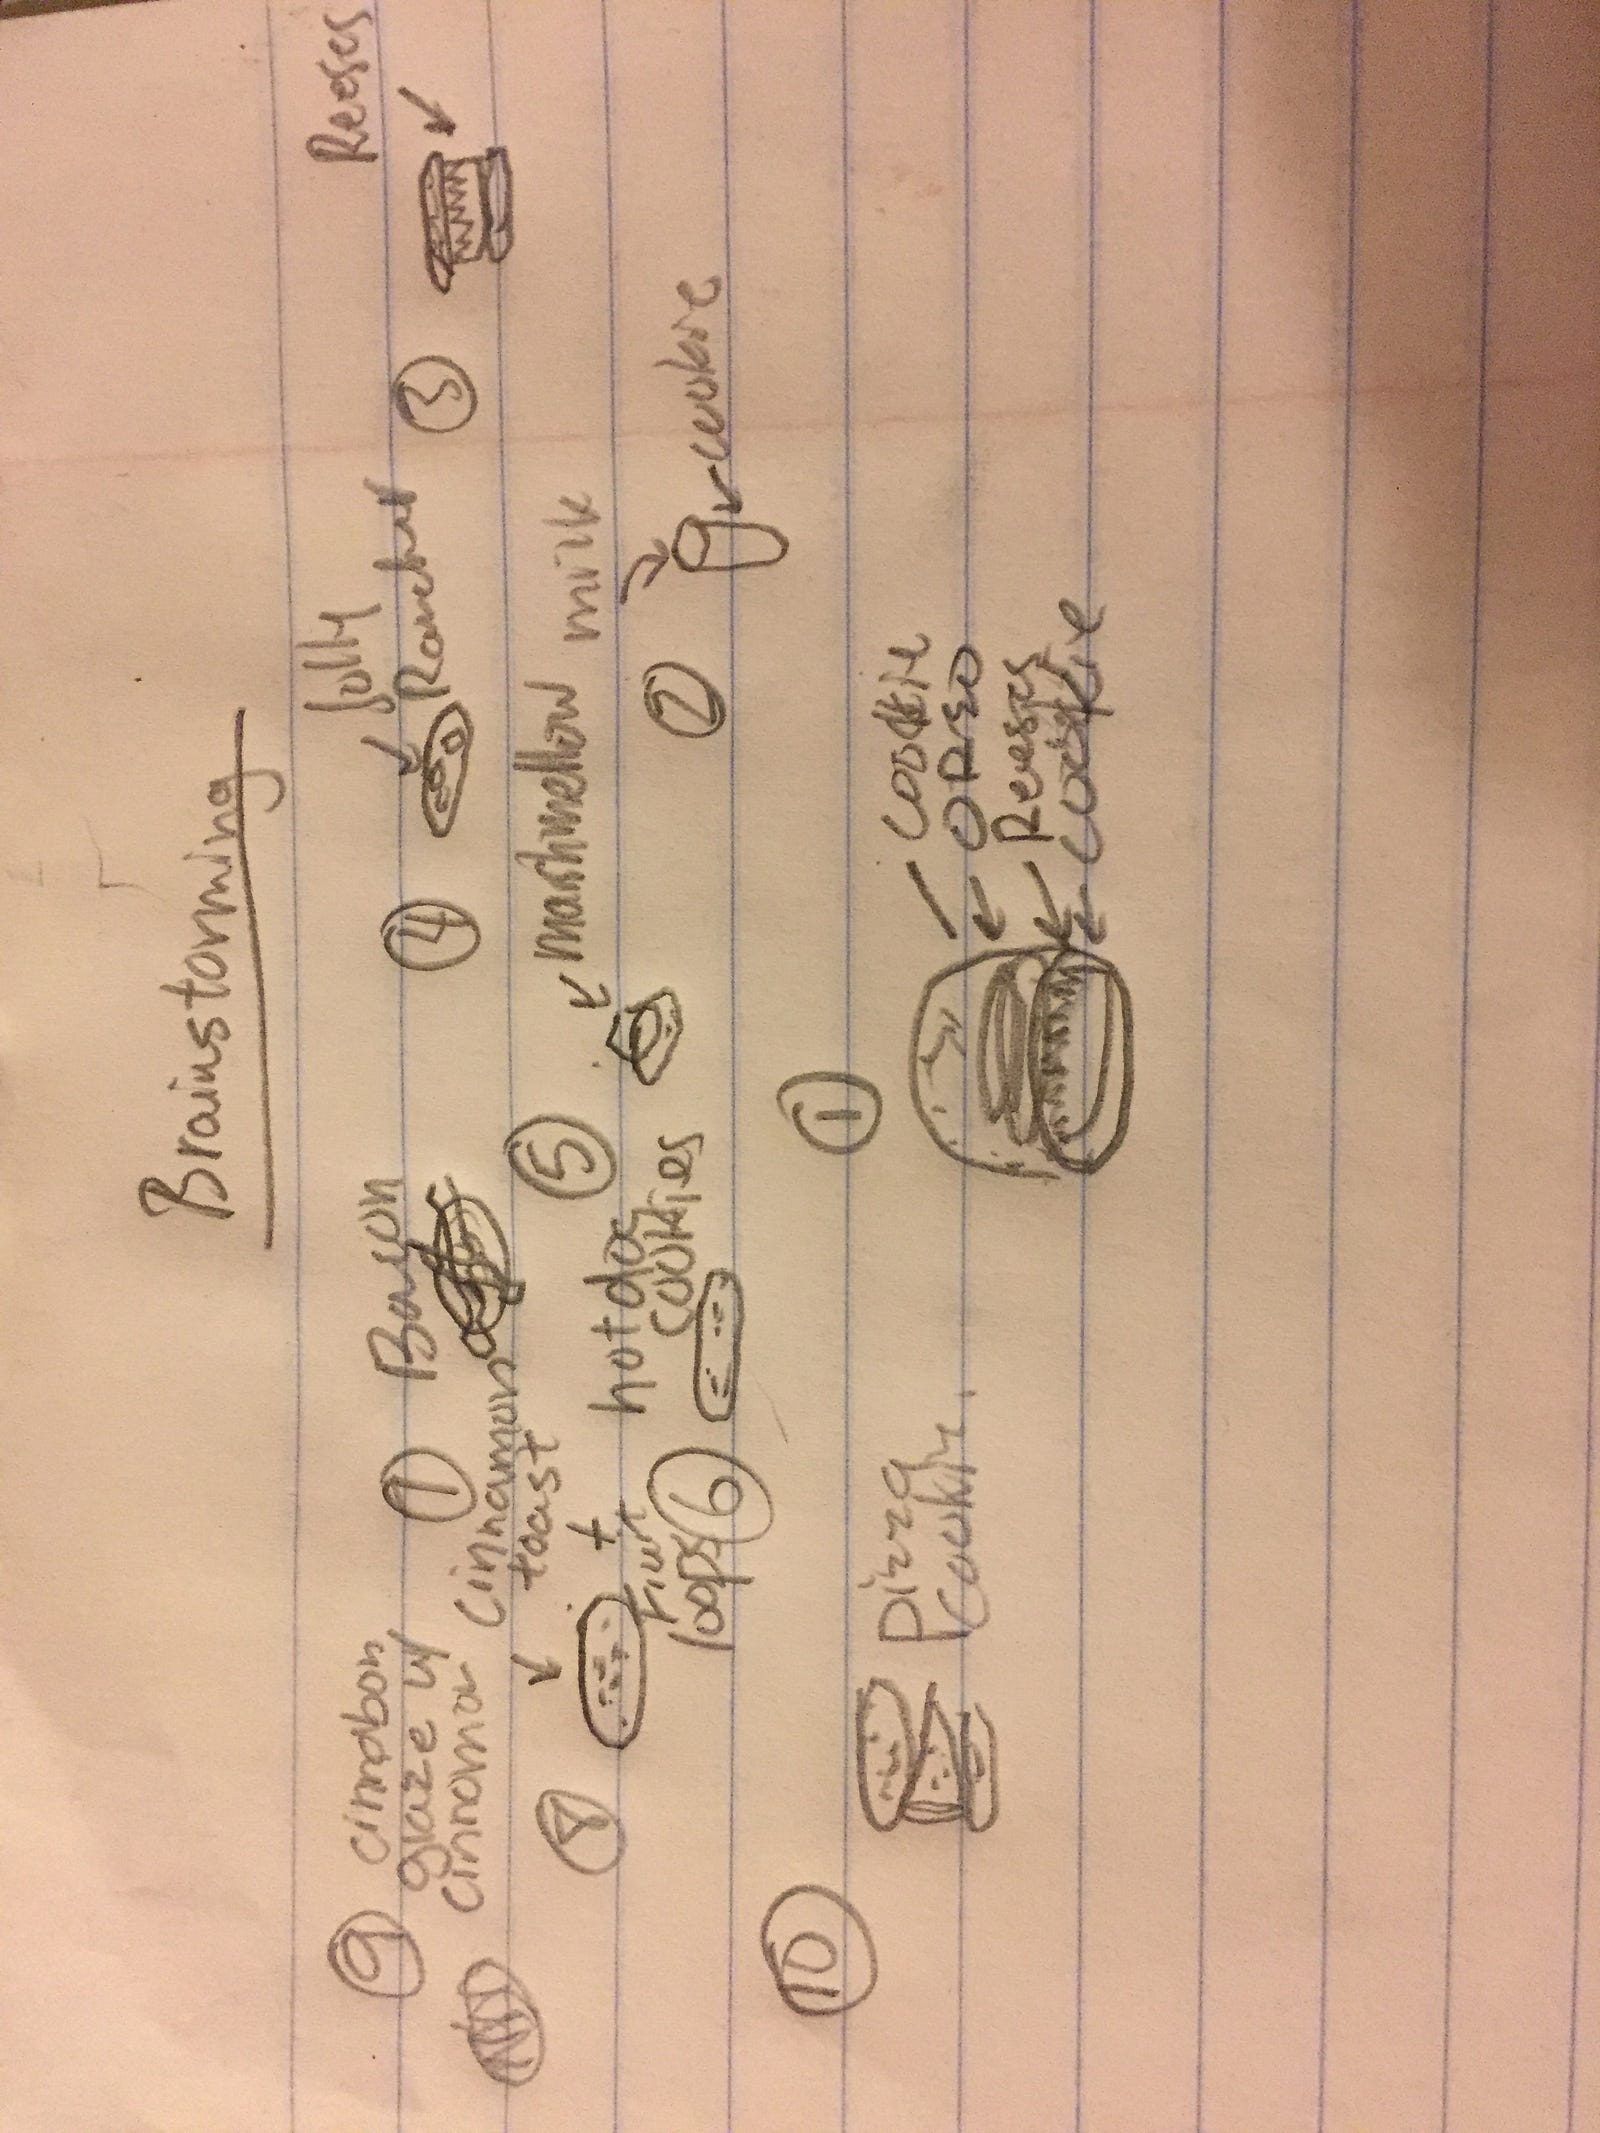 Brainstorming
9 cinnabon
glaze w/
cinnamon
7 Bacon
4 Jolly
Rancher
3 Reeses
8 cinnamon
toast
+
Fruit
loops
6 hotdog
cookies
5 marshmellow
2 milk
cookie
10 Pizza
Cookie.
1 Cookie
OREO
Reeses
cookie